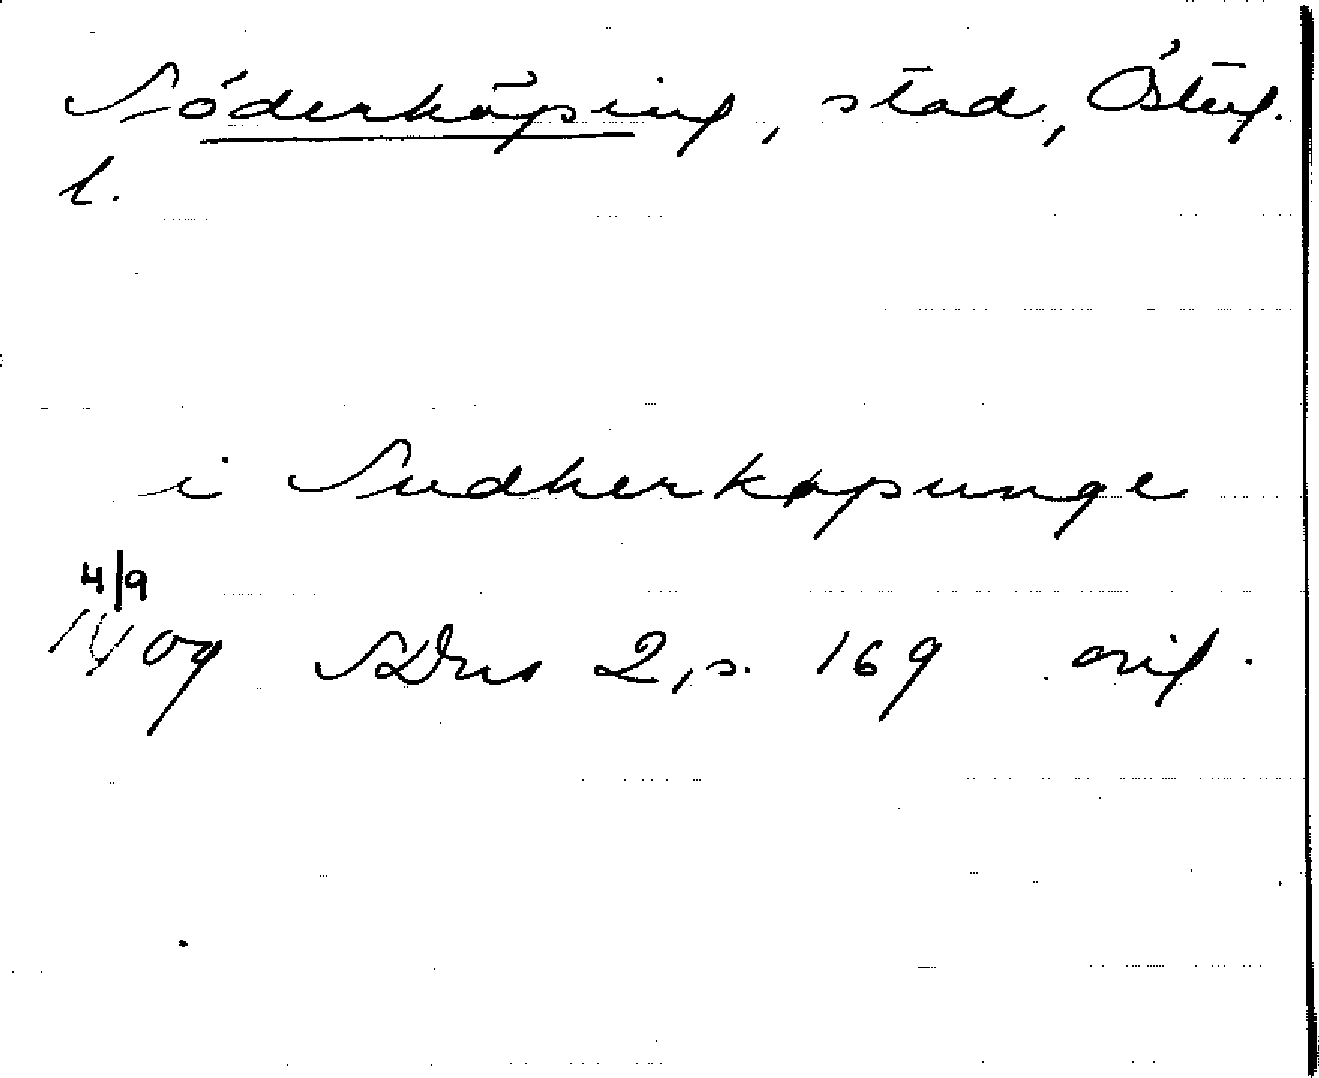 Söderköping, stad, Österg.
l.
i Sudherkøpunge
4/9
1409 SDns 2, s. 169 orig.